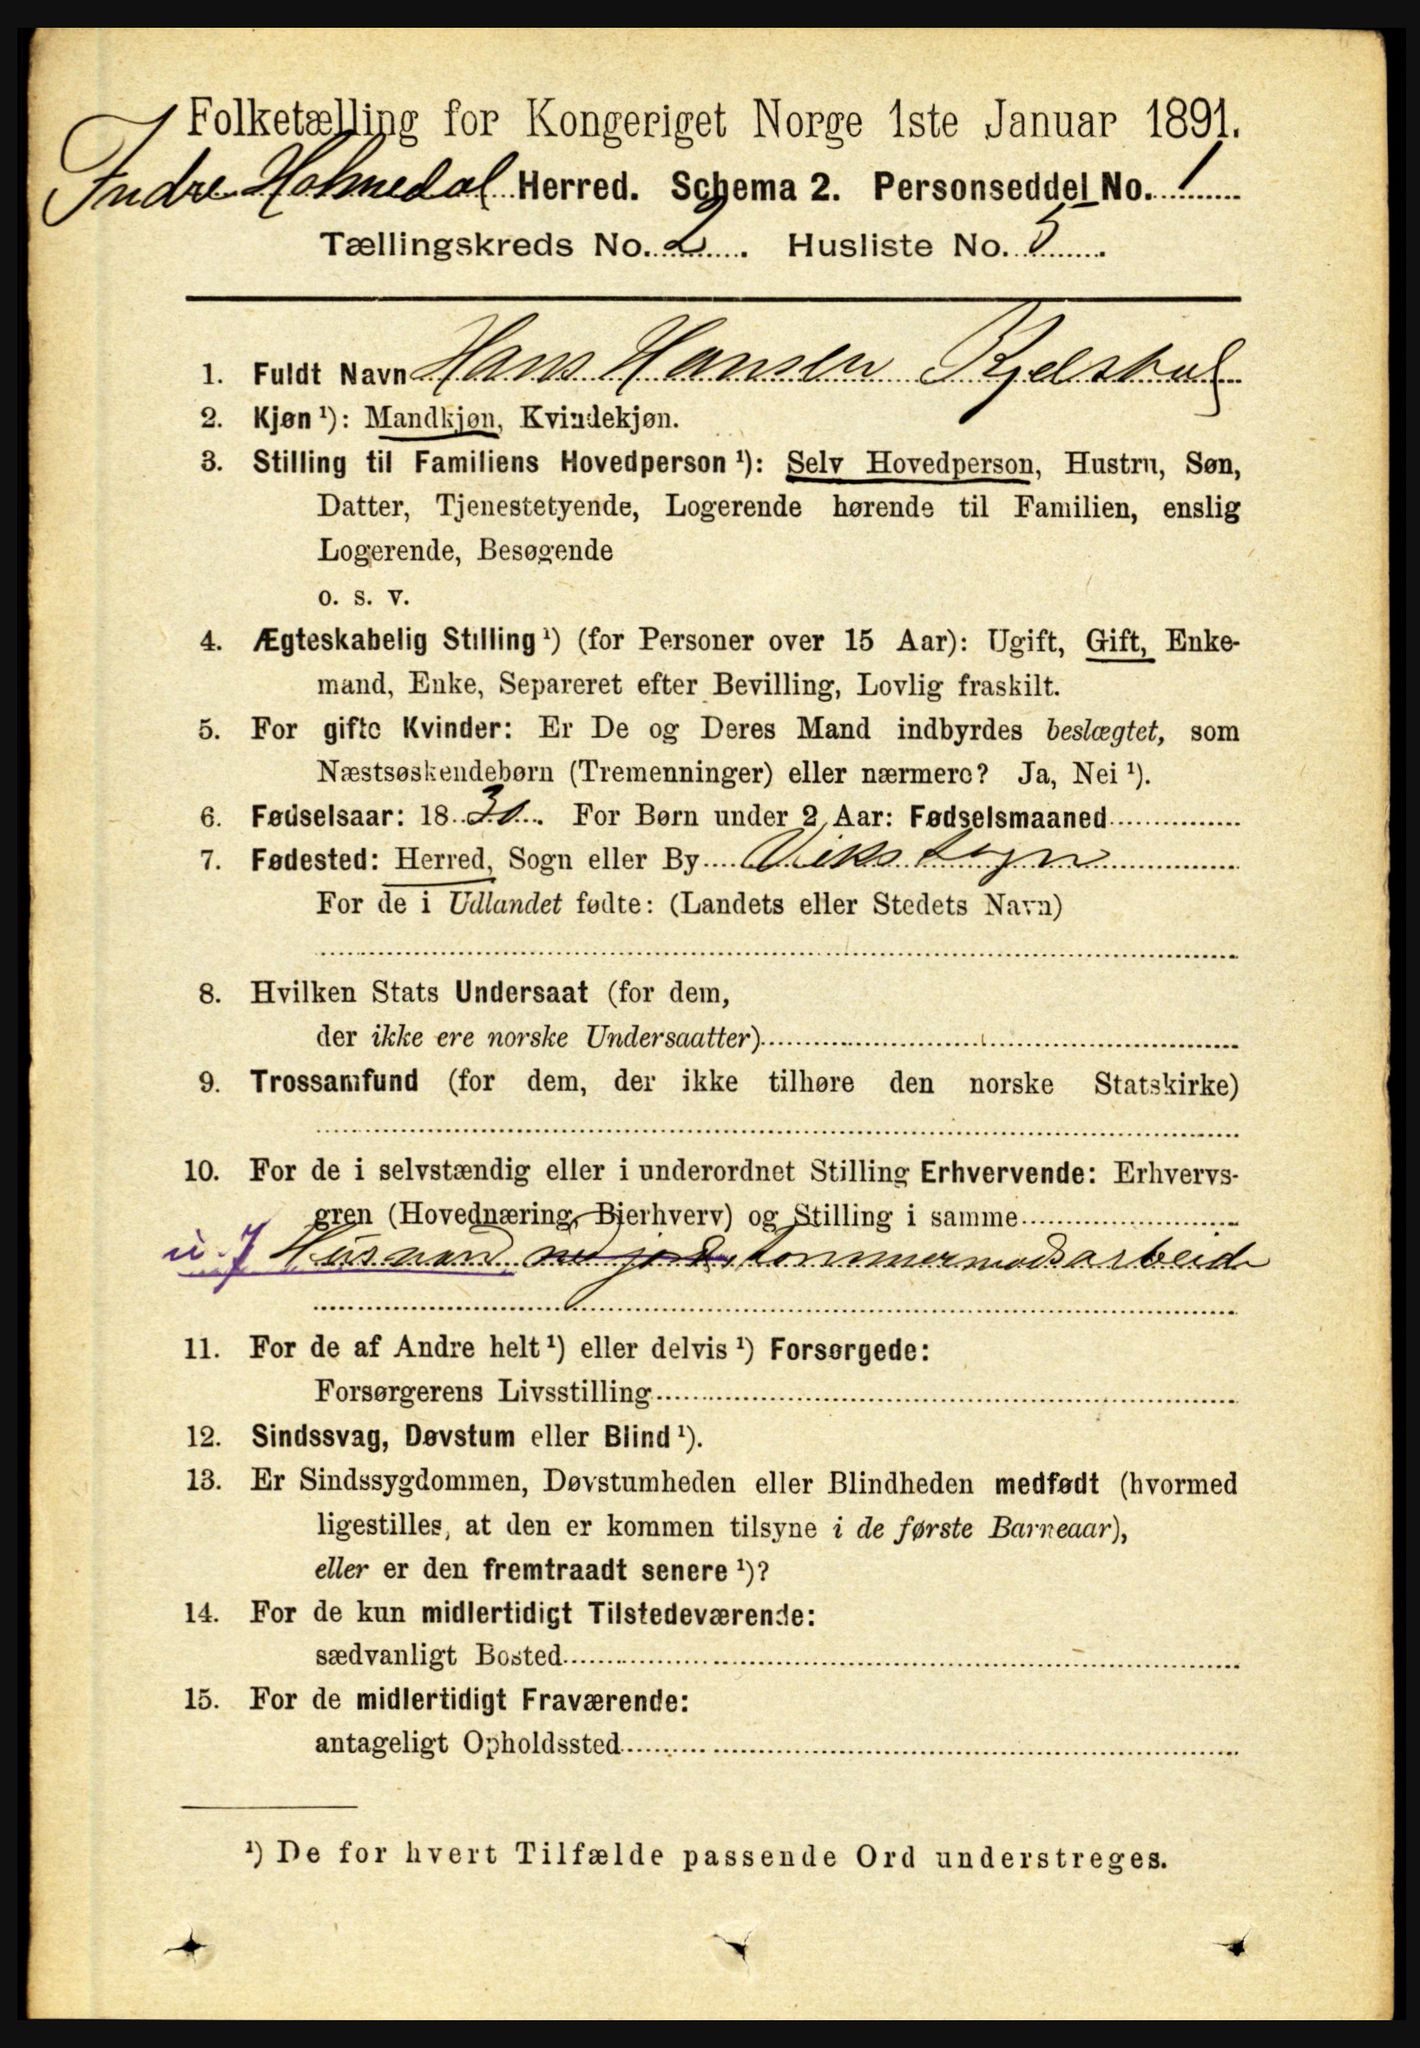 Folketælling for Kongeriget Norge 1ste Januar 1891.
Indre Holmedal Herred. Schema 2. Personseddel No. 1
Tællingskreds No. 2. Husliste No. 5.
1. Fuldt Navn Hans Hansen
2. Kjøn ¹): Mandkjøn, Kvindekjøn.
3. Stilling til Familiens Hovedperson ¹): Selv Hovedperson, Hustru, Søn,
Datter, Tjenestetyende, Logerende hørende til Familien, enslig
Logerende, Besøgende
o. s. v.
4. Ægteskabelig Stilling ¹) (for Personer over 15 Aar): Ugift, Gift, Enke-
mand, Enke, Separeret efter Bevilling, Lovlig fraskilt.
5. For gifte Kvinder: Er De og Deres Mand indbyrdes beslægtet, som
Næstsøskendebørn (Tremenninger) eller nærmere? Ja, Nei ¹).
6. Fødselsaar: 1830. For Børn under 2 Aar: Fødselsmaaned
7. Fødested: Herred, Sogn eller By Viks Sogn
For de i Udlandet fødte: (Landets eller Stedets Navn)
8. Hvilken Stats Undersaat (for dem,
der ikke ere norske Undersaatter)
9. Trossamfund (for dem, der ikke tilhøre den norske Statskirke)
10. For de i selvstændig eller i underordnet Stilling Erhvervende: Erhvervs-
gren (Hovednæring, Bierhverv) og Stilling i samme
Husmand med jord, tommermandsarbeide
11. For de af Andre helt ¹) eller delvis ¹) Forsørgede:
Forsørgerens Livsstilling
12. Sindssvag, Døvstum eller Blind ¹).
13. Er Sindssygdommen, Døvstumheden eller Blindheden medfødt (hvormed
ligestilles, at den er kommen tilsyne i de første Barneaar),
eller er den fremtraadt senere ¹)?
14. For de kun midlertidigt Tilstedeværende:
sædvanligt Bosted
15. For de midlertidigt Fraværende:
antageligt Opholdssted
¹) De for hvert Tilfælde passende Ord understreges.